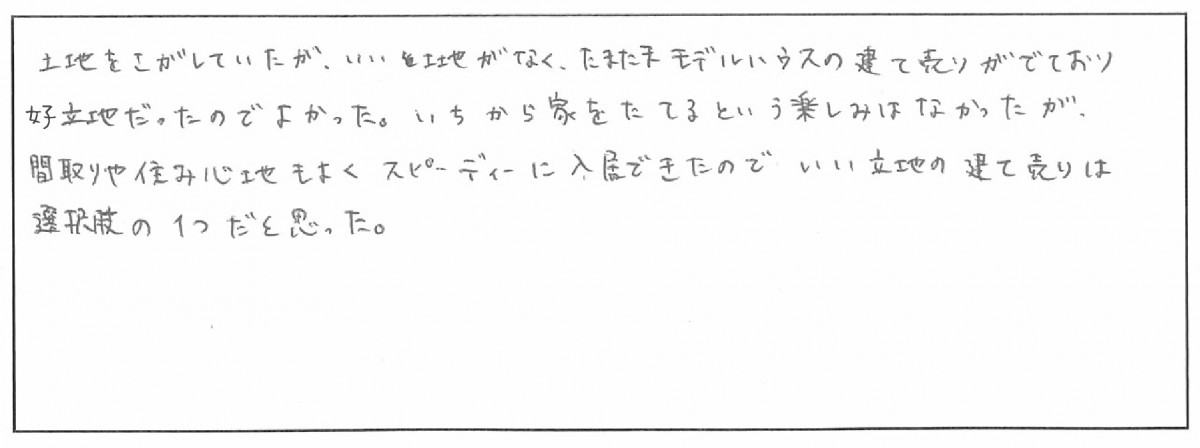 土地をさがしていたが、いい土地がなく、たまたまモデルハウスの建て売りがでており
好立地だったのでよかった。いちから家をたてるという楽しみはなかったが、
間取りや住み心地もよくスピーディーに入居できたのでいい立地の建て売りは
選択肢の1つだと思った。